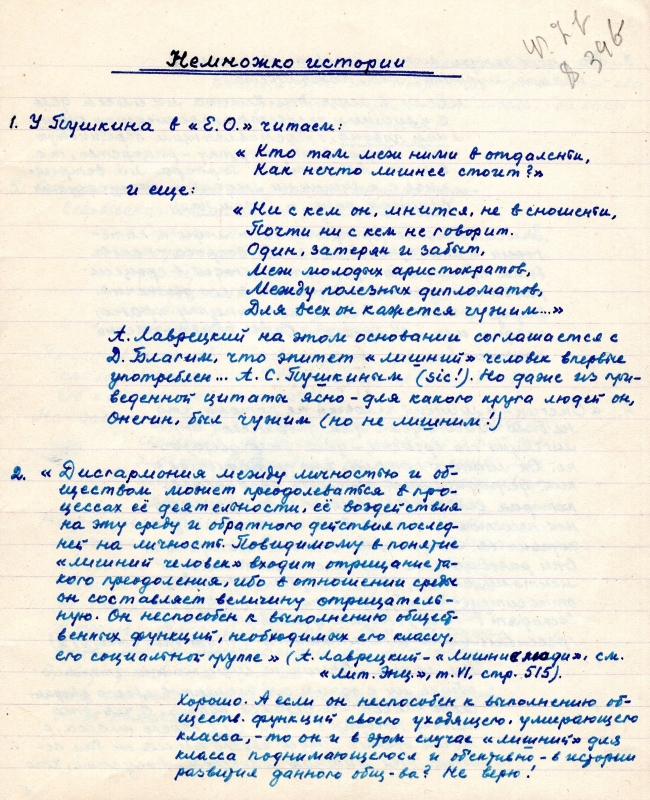 Немножко истории
1. У Пушкина в «Е.О.» читаем:
« Кто там меж ними в отдаленьи,
Как нечто лишнее стоит?»
и еще:
« Ни с кем он, мнится, не в сношеньи,
Почти ни с кем не говорит.
Один, затерян и забыт,
Меж молодых аристократов,
Между полезных дипломатов,
Для всех он кажется чужим...»
А. Лаврецкий на этом основании соглашается с
Д. Благим, что эпитет «лишний» человек впервые
употреблен... А.С. Пушкиным (sic!). Но даже из при-
веденной цитаты ясно - для какого круга людей он,
Онегин, был чужим (но не лишним!)
2. « Дисгармония между личностью и об-
ществом может преодолеваться в про-
цессах её деятельности, её воздействия
на эту среду и обратного действия послед-
ней на личность. Повидимому в понятие
«лишний человек» входит отрицание та-
кого преодоления, ибо в отношении среды
он составляет величину отрицатель-
ную. Он неспособен к выполнению общест-
венных функций, необходимых его классу,
его социальной группе » (А. Лаврецкий - «Лишние люди», см.
«Лит. Энц.», т. VI, стр. 515).
Хорошо. А если он неспособен к выполнению об-
ществ. функций своего уходящего, умирающего
класса, - то он и в этом случае «лишний» для
класса поднимающегося и объективно - в истории
развития данного общ-ва? Не верю!